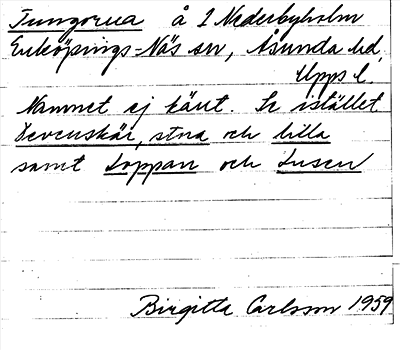 Tungorna å 1 Nederbyholm
Enköpings-Näs sn, Åsunda hd,
Upps l.
Namnet ej känt. Se istället
Svenskär, stna och lilla
samt Loppan och Lusen
Birgitta Carlsson 1959